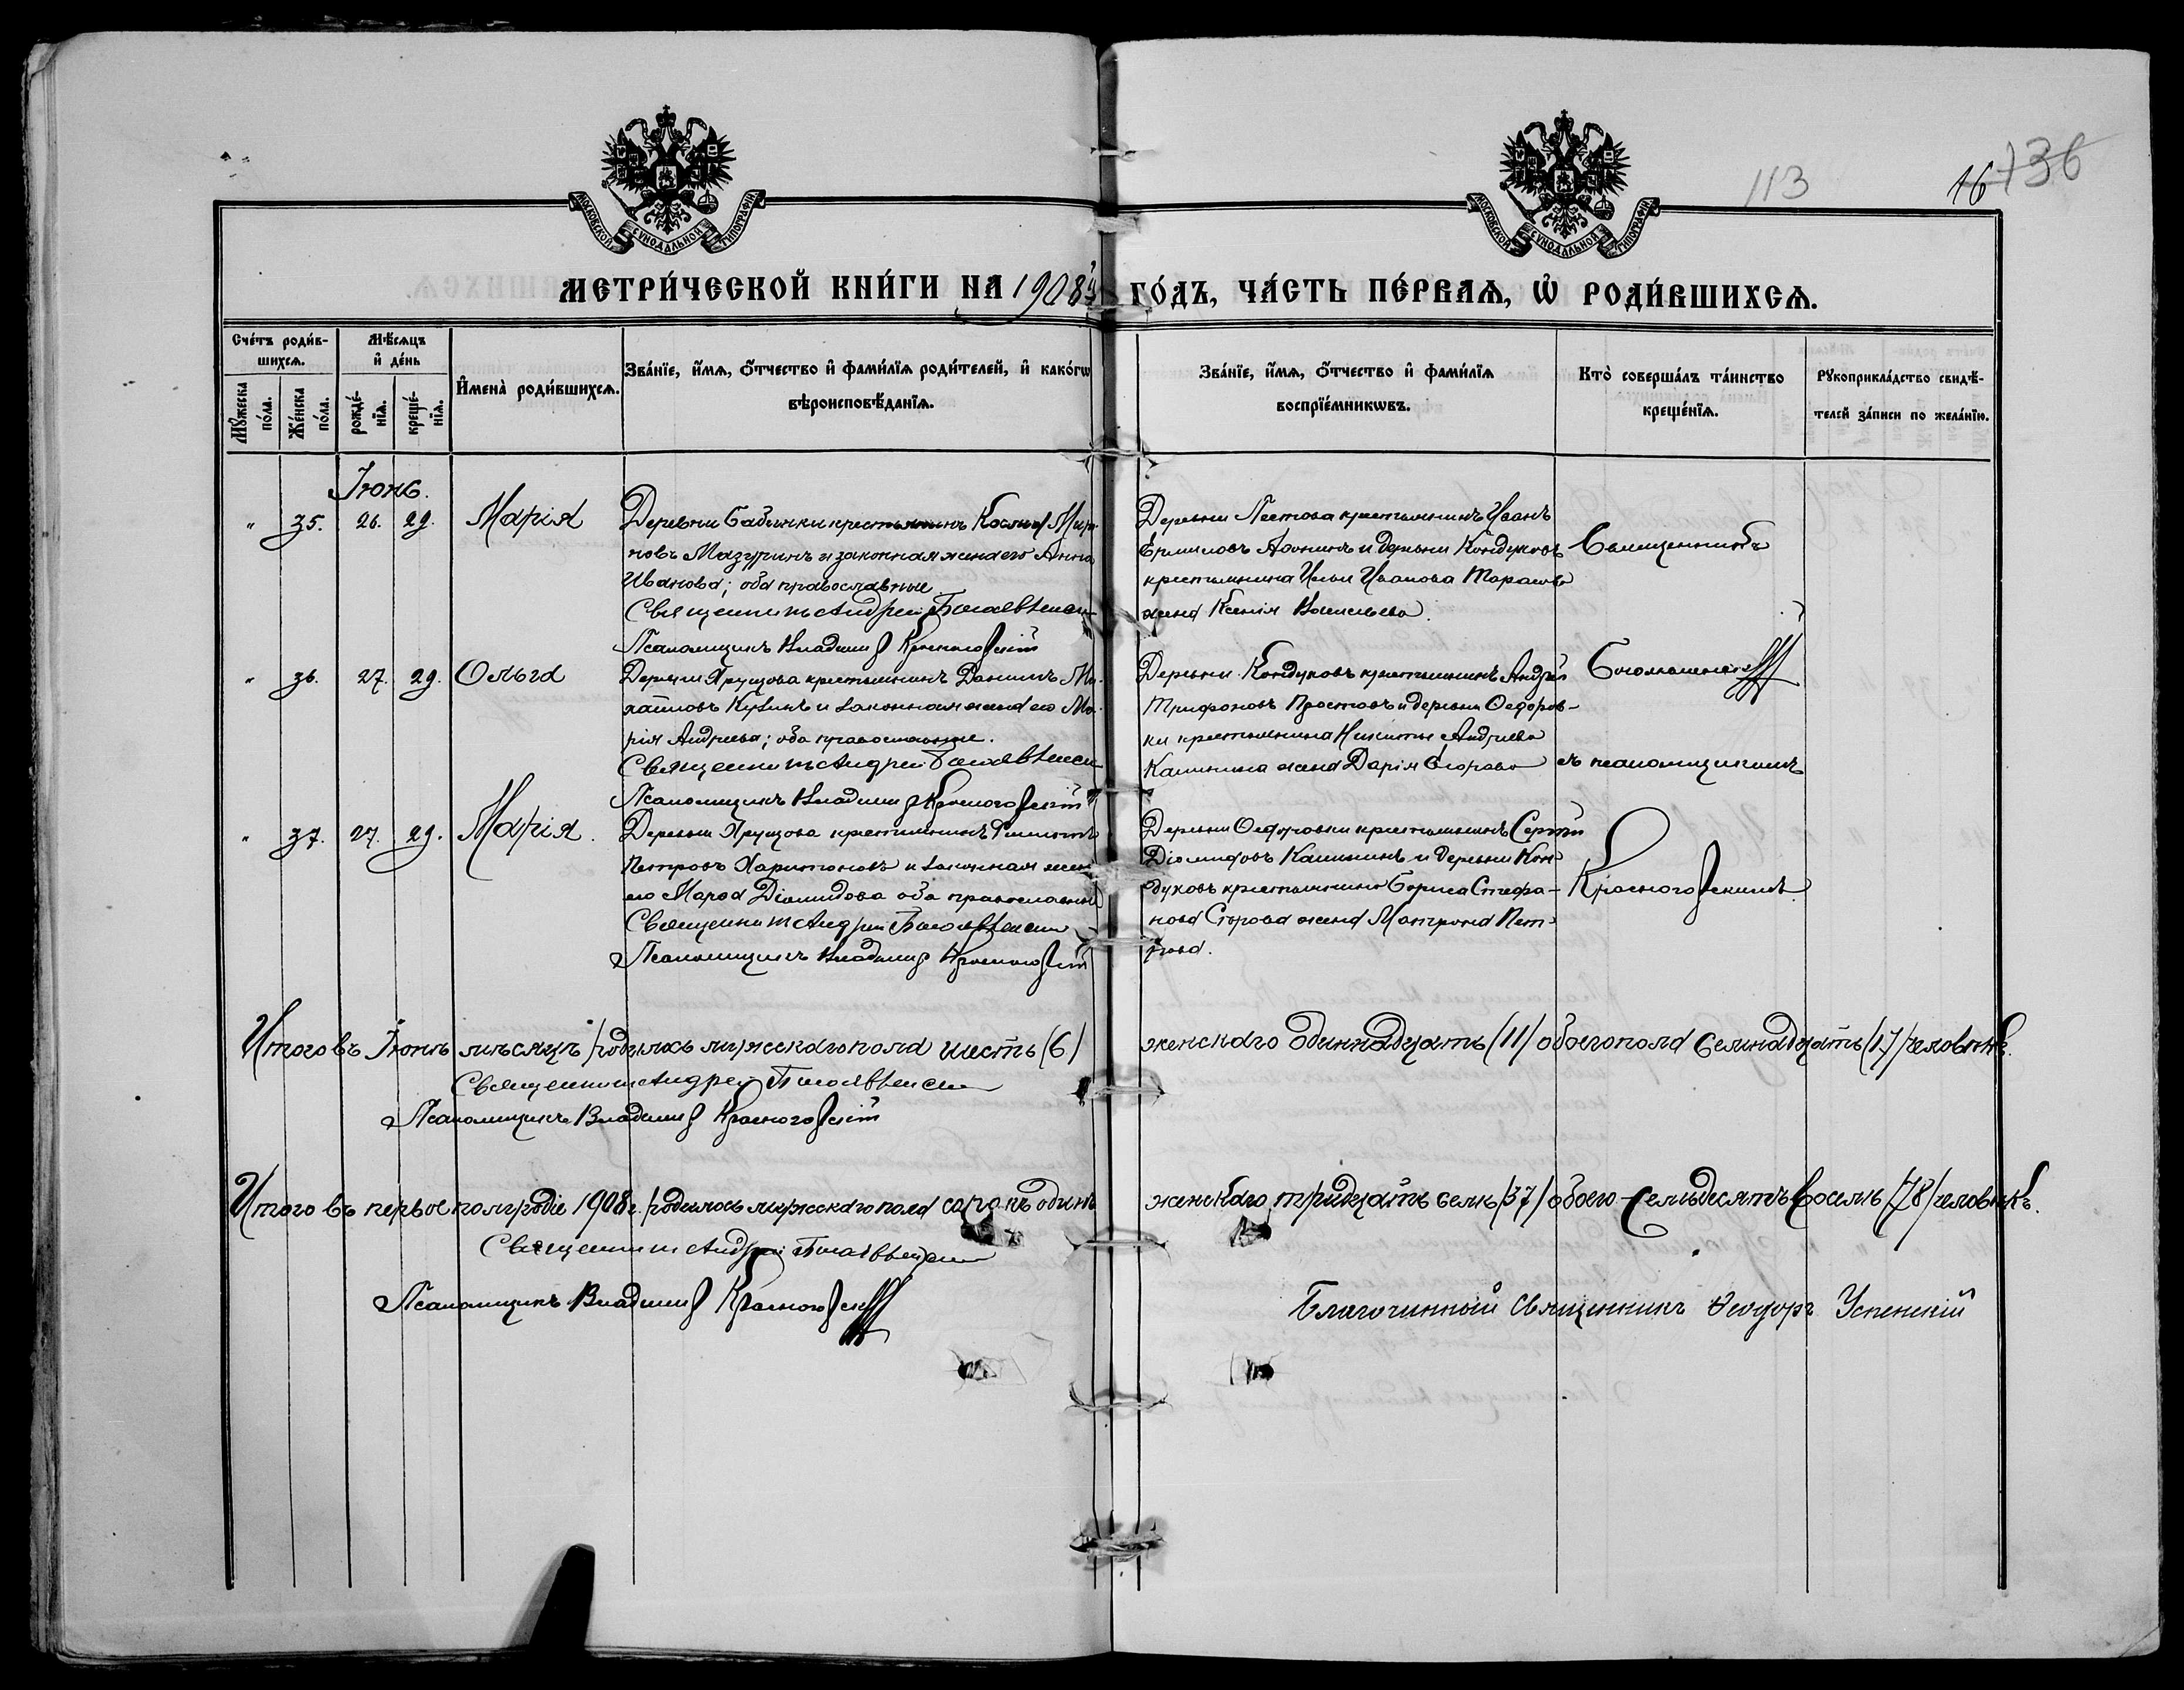 МОСКОВСКОЙ СѴНОДАЛЬНОЙ ТИПОГРАФІИ
МОСКОВСКОЙ СѴНОДАЛЬНОЙ ТИПОГРАФІИ
113
16
136
МЕТРИ́ЧЕСКОЙ КНИ́ГИ НА 1908й ГО́ДЪ, ЧА́СТЬ ПЕ́РВАѦ, Ѡ҆ РОДИ́ВШИХСѦ.
Сче́тъ роди́в-
шихсѧ.
Мꙋ́жеска по́ла.
Же́нска по́ла.
Мѣ́сѧцъ и҆ де́нь
рожде́-
нїѧ.
креще́-
нїѧ.
И҆мена̀ роди́вшихсѧ.
Зва́нїе, и҆́мѧ, ѻ҆́тчество и҆ фами́лїѧ роди́телей, и҆ како́гѡ
вѣроисповѣ́данїѧ.
Зва́нїе, и҆́мѧ, ѻ҆́тчество и҆ фами́лїѧ
воспрїе́мникѡвъ.
Кто̀ соверша́лъ та́инство
креще́нїѧ.
Рꙋкоприкла́дство свидѣ́-
телей за́писи по жела́нїю.
Іюнь.
" 35. 26. 29. Марія
Деревни Бабинки крестьянинъ Косьма Миро-
новъ Мазуринъ и законная жена его Анна
Иванова; оба православные
Священникъ Андрей Богоявленскій
Псаломщикъ Владимиръ Красногорскій
Деревни Пестова крестьянинъ Иванъ
Ермиловъ Аѳонинъ и деревни Кондуковъ
крестьянина Ильи Иванова Тарасова
жена Ксенія Васильева.
Священникъ
" 36. 27. 29. Ольга
Деревни Хрущова крестьянинъ Даніилъ Ми-
хаиловъ и законная жена его Ма-
рія Андреева; оба православные.
Священникъ Андрей Богоявленскій
Псаломщикъ Владимиръ Красногорскій
Деревни Кондуковъ крестьянинъ Андрей
Трифоновъ Простовъ и деревни Ѳедоров-
ки крестьянина Никиты Андреева
Калинина жена Дарія Егорова
Богоявленскій
съ псаломщикомъ
" 37. 27. 29. Марія.
Деревни Хрущова крестьянинъ Филиппъ
Петровъ Харитоновъ и законная жена
его Марѳа Діомидова оба православные
Священникъ Андрей Богоявленскій
Псаломщикъ Владимиръ Красногорскій
Деревни Ѳедоровки крестьянинъ Сергѣй
Діомидовъ Калининъ и деревни Кон-
дуковъ крестьянина Бориса Стефа-
нова жена Матрона Пет-
рова.
Красногорскимъ.
Итого въ Іюнѣ мѣсяцѣ родилось мужескаго пола шесть (6) женскаго одиннадцать (11) обоего пола семнадцать (17) человѣкъ.
Священникъ Андрей Богоявленскій
Псаломщикъ Владимиръ Красногорскій
Итого въ первое полугодіе 1908 г. родилось мужескаго пола сорокъ одинъ женскаго тридцать семь (37) обоего - семьдесятъ восемь (78) человѣкъ.
Священникъ Андрей Богоявленскій
Псаломщикъ Владимиръ Красногорскій
Благочинный Священникъ Ѳеодоръ Успенскій